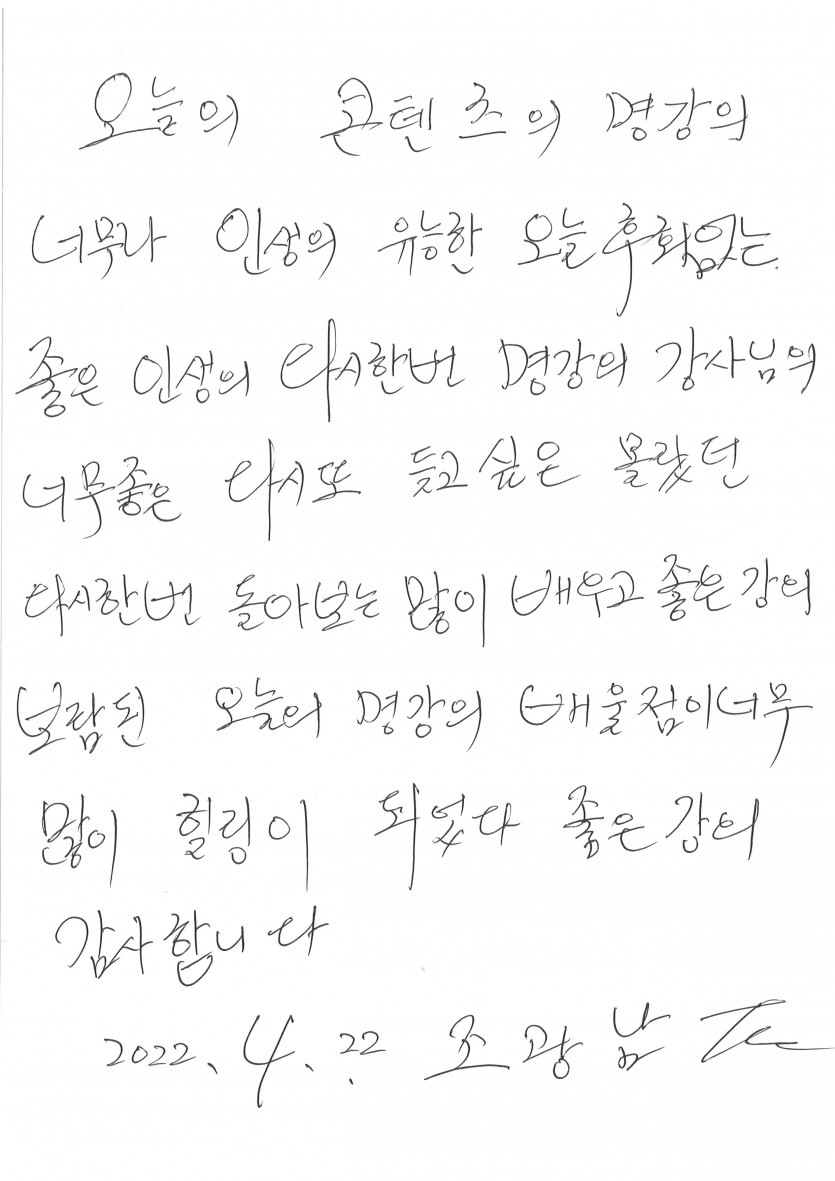 오늘의 콘텐츠의 명강의
너무나 인생의 유능한 오늘 후회없는
좋은 인생의 다시한번 명강의 강사님의
너무좋은 다시또 듣고싶은 몰랐던
다시한번 돌아보는 많이 배우고 좋은강의
보람된 오늘의 명강의 배울점이너무
많이 힐링이 되었다 좋은강의
감사합니다
2022. 4. 22 조광남